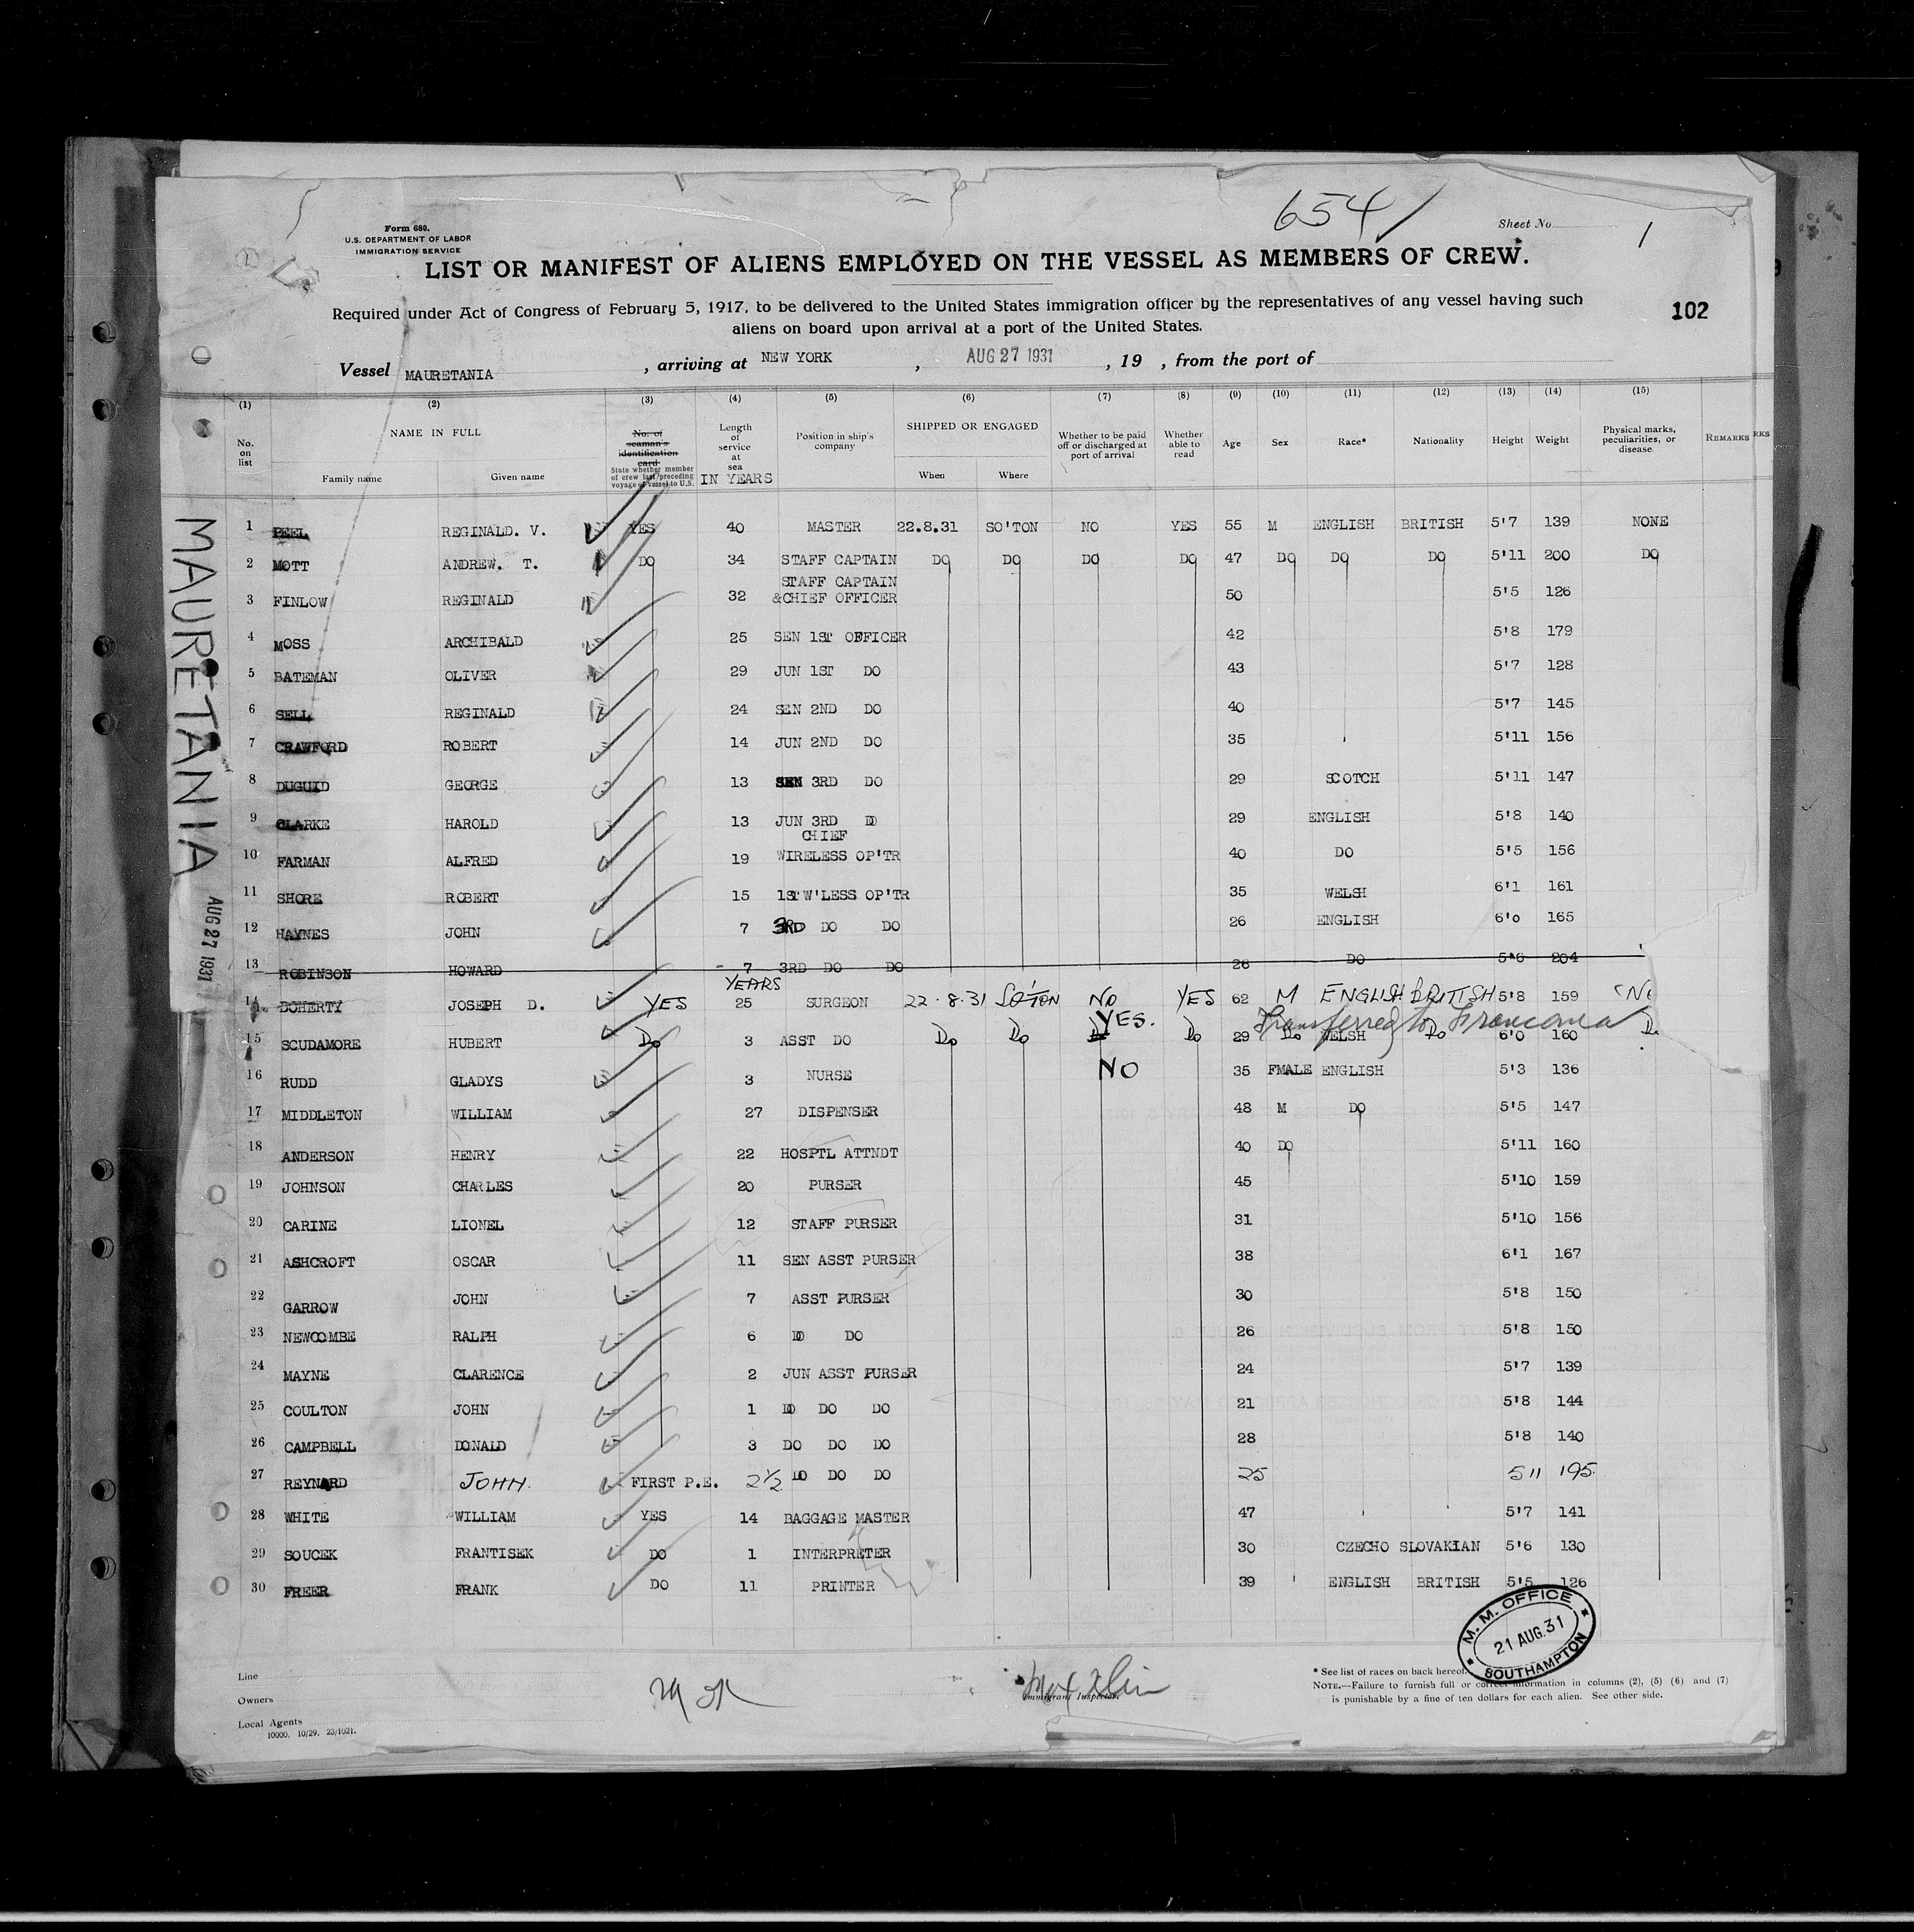 6541
Sheet No. 1
Form 680.
U.S. DEPARTMENT OF LABOR
IMMIGRATION SERVICE
LIST OR MANIFEST OF ALIENS EMPLOYED ON THE VESSEL AS MEMBERS OF CREW.
Required under Act of Congress of February 5, 1917, to be delivered to the United States immigration officer by the representatives of any vessel having such
aliens on board upon arrival at a port of the United States.
102
Vessel MAURETANIA , arriving at NEW YORK , AUG 27 1931 , 19 , from the port of
(1) (2) (3) (4) (5) (6) (7) (8) (9) (10) (11) (12) (13) (14) (15)
No. on list NAME IN FULL Family name Given name No. of seaman's identification card State whether member of crew last preceding voyage of vessel to U.S. Length of service at sea IN YEARS Position in ship's company SHIPPED OR ENGAGED When Where Whether to be paid off or discharged at port of arrival Whether able to read Age Sex Race* Nationality Height Weight Physical marks, peculiarities, or disease REMARKS RKS
MAURETANIA
AUG 27 1931
1 PEEL REGINALD. V. YES 40 MASTER 22.8.31 SO'TON NO YES 55 M ENGLISH BRITISH 5'7 139 NONE
2 MOTT ANDREW. T. DO 34 STAFF CAPTAIN DO DO DO DO 47 DO DO DO 5'11 200 DO
3 FINLOW REGINALD 32 STAFF CAPTAIN &CHIEF OFFICER 50 5'5 126
4 MOSS ARCHIBALD 25 SEN 1ST OFFICER 42 5'8 179
5 BATEMAN OLIVER 29 JUN 1ST DO 43 5'7 128
6 SELL REGINALD 24 SEN 2ND DO 40 5'7 145
7 CRAWFORD ROBERT 14 JUN 2ND DO 35 5'11 156
8 DUGUID GEORGE 13 SEN 3RD DO 29 SCOTCH 5'11 147
9 CLARKE HAROLD 13 JUN 3RD DO 29 ENGLISH 5'8 140
10 FARMAN ALFRED 19 CHIEF WIRELESS OP'TR 40 DO 5'5 156
11 SHORE ROBERT 15 1ST W'LESS OP'TR 35 WELSH 6'1 161
12 HAYNES JOHN 7 3RD DO DO 26 ENGLISH 6'0 165
13 ROBINSON HOWARD 7 3RD DO DO 26 DO 5'6 204
14 DOHERTY JOSEPH D. YES YEARS 25 SURGEON 22.8.31 SO'TON NO YES 62 M ENGLISH BRITISH 5'8 159
YES. Transferred to Franconia
15 SCUDAMORE HUBERT Do 3 ASST DO Do Do Do 29 Do WELSH Do 6'0 160
16 RUDD GLADYS 3 NURSE NO 35 FMALE ENGLISH 5'3 136
17 MIDDLETON WILLIAM 27 DISPENSER 48 M DO 5'5 147
18 ANDERSON HENRY 22 HOSPTL ATTNDT 40 DO 5'11 160
19 JOHNSON CHARLES 20 PURSER 45 5'10 159
20 CARINE LIONEL 12 STAFF PURSER 31 5'10 156
21 ASHCROFT OSCAR 11 SEN ASST PURSER 38 6'1 167
22 GARROW JOHN 7 ASST PURSER 30 5'8 150
23 NEWCOMBE RALPH 6 DO DO 26 5'8 150
24 MAYNE CLARENCE 2 JUN ASST PURSER 24 5'7 139
25 COULTON JOHN 1 DO DO DO 21 5'8 144
26 CAMPBELL DONALD 3 DO DO DO 28 5'8 140
27 REYNARD JOHN. FIRST P.E. 2½ DO DO DO 25 5 11 195.
28 WHITE WILLIAM YES 14 BAGGAGE MASTER 47 5'7 141
29 SOUCEK FRANTISEK DO 1 INTERPRETER 30 CZECHO SLOVAKIAN 5'6 130
30 FREER FRANK DO 11 PRINTER 39 ENGLISH BRITISH 5'5 126
M. M. OFFICE
21 AUG. 31
SOUTHAMPTON
Line
Owners
Local Agents
10000, 10/29. 23/1021.
Immigrant Inspector.
* See list of races on back hereof.
NOTE.—Failure to furnish full or correct information in columns (2), (5) (6) and (7)
is punishable by a fine of ten dollars for each alien. See other side.